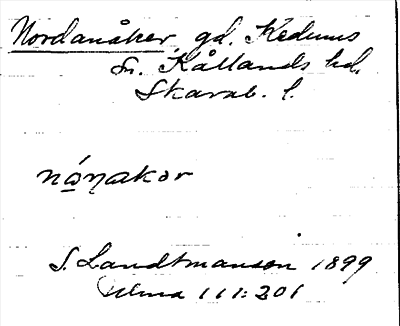 Nordanåker, gd. Kedums
sn. Kållands hd.
Skarab. l.
nó̱ŋakor
S. Landtmanson 1899
Ulma 111:201